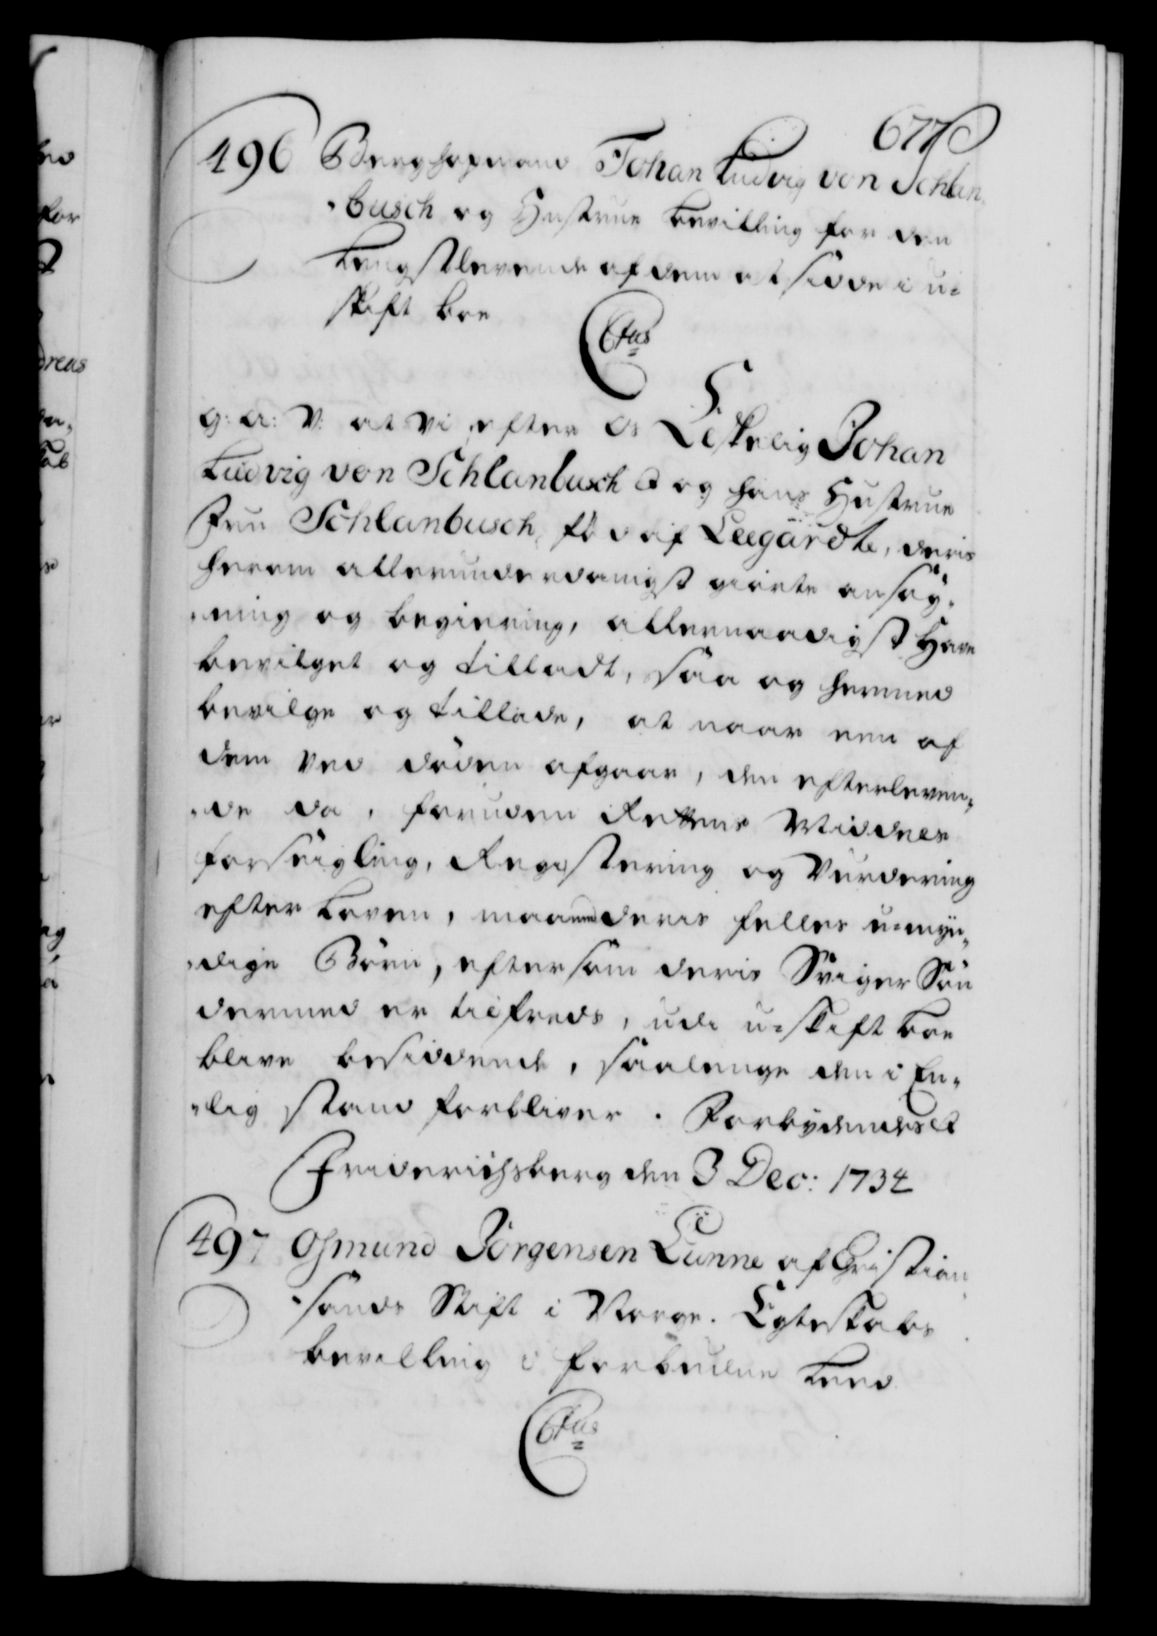 677
496 Berghofmand Johan Ludvig von Schlan-
-busch og Hustrue bevilling for den
Lengstlevende af dem at sidde i u-
skift boe
Ctus
G: A: V: at vi, efter Os Elskelig Johan
Ludvig von Schlanbusch og hans Hustrue
Frue Schlanbusch, fød af Leegårdt, deris
herom allerunderdanigst giorte ansøg-
-ning og begiering, allernaadigst Have
bevilget og tilladt, saa og hermed
bevilge og tillade, at naar een af
dem ved døden afgaar, den efterleven-
-de da, foruden Rettens Middels
forseigling, Registering og Vurdering
efter Loven, maa med deris felles u-myn-
-dige Børn, eftersom deris Sviger Søn
dermed er tilfreds, udi u-skift boe
blive besiddende, saalenge den i En-
-lig stand forbliver. Forbydendes &c
Friderichsberg den 3 Dec: 1734
497 Osmund Jörgensen Lunne af Christian-
-sands Stift i Norge. Egteskabs
bevilling i forbudne Leed
Ctus